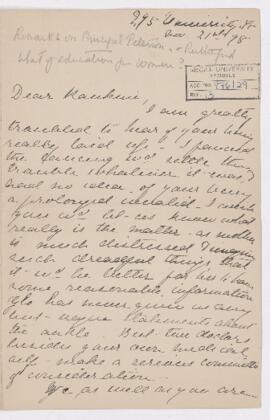 295 University St.
Nov 21st/98
Remarks on Principal Peterson, & Rutherford
What of education for women?
McGILL UNIVERSITY
ARCHIVES
ACC. NO.
REF.
Dear Maukin,
I am greatly
troubled to hear of your being
really laid up. I fancied
the dancing wd settle the
trouble whatever it was &
had no idea of your being
a prolonged invalid. I wish
you wd let us know what
really is the matter as mother
is much distressed & imagines
such dreadful things that
it wd be better for her to have
some reasonable information
has never given us any
statements about
the ankle. But two doctors
besides your own medical
self make a serious committee
of consideration.
as well as you are